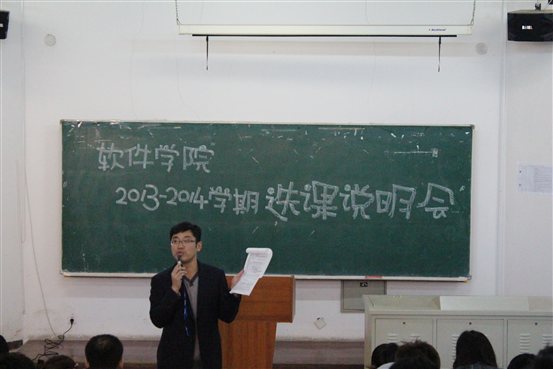 软件学院
2013-2014学期选课说明会